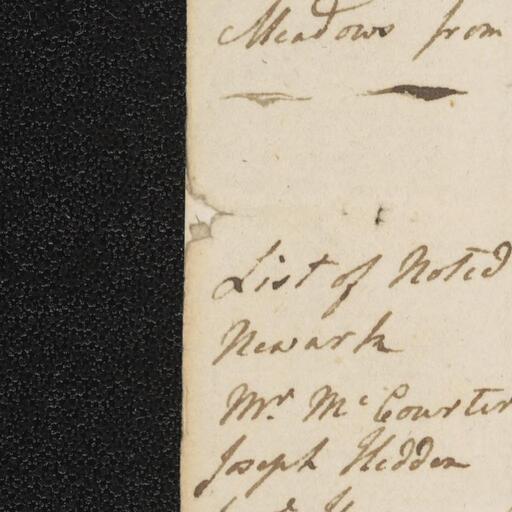 Meadows from
List of Noted
Newark
Mr. McCourter
Joseph Hedden